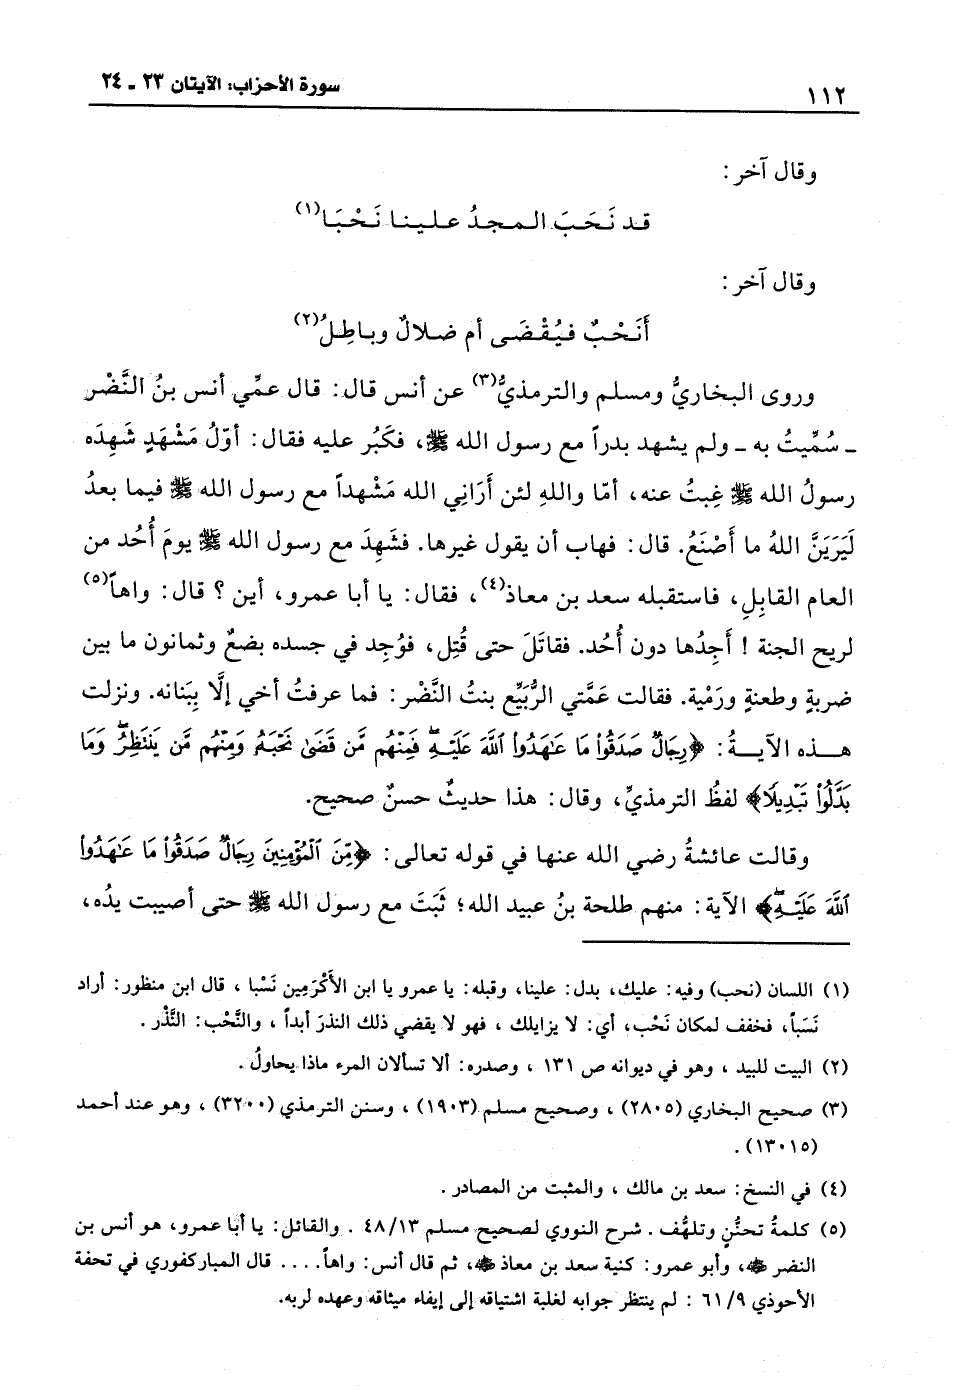 ١١٢
سورة الأحزاب: الآيتان ٢٣ ـ ٢٤
وقال آخر :
قد نَحَبَ المجدُ علينا نَحْبَا(١)
وقال آخر :
أَنَحْبٌ فيُقْضَى أم ضلالٌ وباطِلُ(٢)
وروى البخاريُّ ومسلم والترمذيُّ(٣) عن أنس قال: قال عمِّي أنس بنُ النَّضْر
ـ سُمِّيتُ به ـ ولم يشهد بدراً مع رسول الله ﷺ، فكَبُر عليه فقال: أوّلُ مَشْهَدٍ شَهِدَه
رسولُ الله ﷺ غِبتُ عنه، أمّا واللهِ لئن أَرَاني الله مَشْهداً مع رسول الله ﷺ فيما بعدُ
لَيَرَيَنَّ اللهُ ما أَصْنَعُ. قال: فهاب أن يقول غيرها. فشَهِدَ مع رسول الله ﷺ يومَ أُحُد من
العام القابِلِ، فاستقبله سعد بن معاذ(٤)، فقال: يا أبا عمرو، أين ؟ قال: واهاً(٥)
لريح الجنة ! أَجِدُها دون أُحُد. فقاتَلَ حتى قُتِل، فوُجِد في جسده بضعٌ وثمانون ما بين
ضربةٍ وطعنةٍ ورَمْية. فقالت عَمَّتي الرُّبَيِّع بنتُ النَّضْر: فما عرفتُ أخي إلَّا بِبَنانه. ونزلت
هذه الآيةُ: ﴿رِجَالٌ صَدَقُواْ مَا عَٰهَدُواْ ٱللَّهَ عَلَيْهِۖ فَمِنْهُم مَّن قَضَىٰ نَحْبَهُۥ وَمِنْهُم مَّن يَنتَظِرُۖ وَمَا
بَدَّلُواْ تَبْدِيلًا﴾ لفظُ الترمذيِّ، وقال: هذا حديثٌ حسنٌ صحيح.
وقالت عائشةُ رضي الله عنها في قوله تعالى: ﴿مِّنَ ٱلْمُؤْمِنِينَ رِجَالٌ صَدَقُواْ مَا عَٰهَدُواْ
ٱللَّهَ عَلَيْهِۖ﴾ الآية: منهم طلحة بنُ عبيد الله؛ ثَبَتَ مع رسول الله ﷺ حتى أصيبت يدُه،
(١) اللسان (نحب) وفيه: عليك، بدل: علينا، وقبله: يا عمرو يا ابن الأَكْرَمِين نَسْبا ، قال ابن منظور: أراد
نَسَباً، فخفف لمكان نَحْب، أي: لا يزايلك ، فهو لا يقضي ذلك النذرَ أبداً ، والنَّحْب: النَّذْر .
(٢) البيت للبيد ، وهو في ديوانه ص ١٣١ ، وصدره: ألا تسألان المرء ماذا يحاولُ .
(٣) صحيح البخاري (٢٨٠٥) ، وصحيح مسلم (١٩٠٣) ، وسنن الترمذي (٣٢٠٠) ، وهو عند أحمد
(١٣٠١٥) .
(٤) في النسخ: سعد بن مالك ، والمثبت من المصادر .
(٥) كلمةُ تحنُّنٍ وتلهُّف . شرح النووي لصحيح مسلم ٤٨/١٣ . والقائل: يا أبا عمرو، هو أنس بن
النضر ﷺ، وأبو عمرو: كنية سعد بن معاذ ﷺ، ثم قال أنس: واهاً.... قال المباركفوري في تحفة
الأحوذي ٦١/٩ : لم ينتظر جوابه لغلبة اشتياقه إلى إيفاء ميثاقه وعهده لربه.